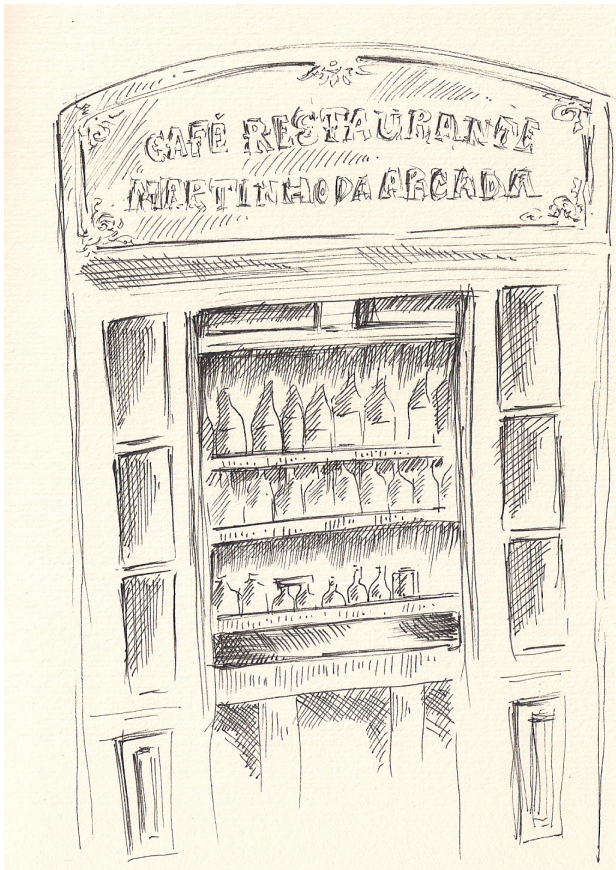 CAFÉ RESTAURANTE
MARTINHO DA ARCADA